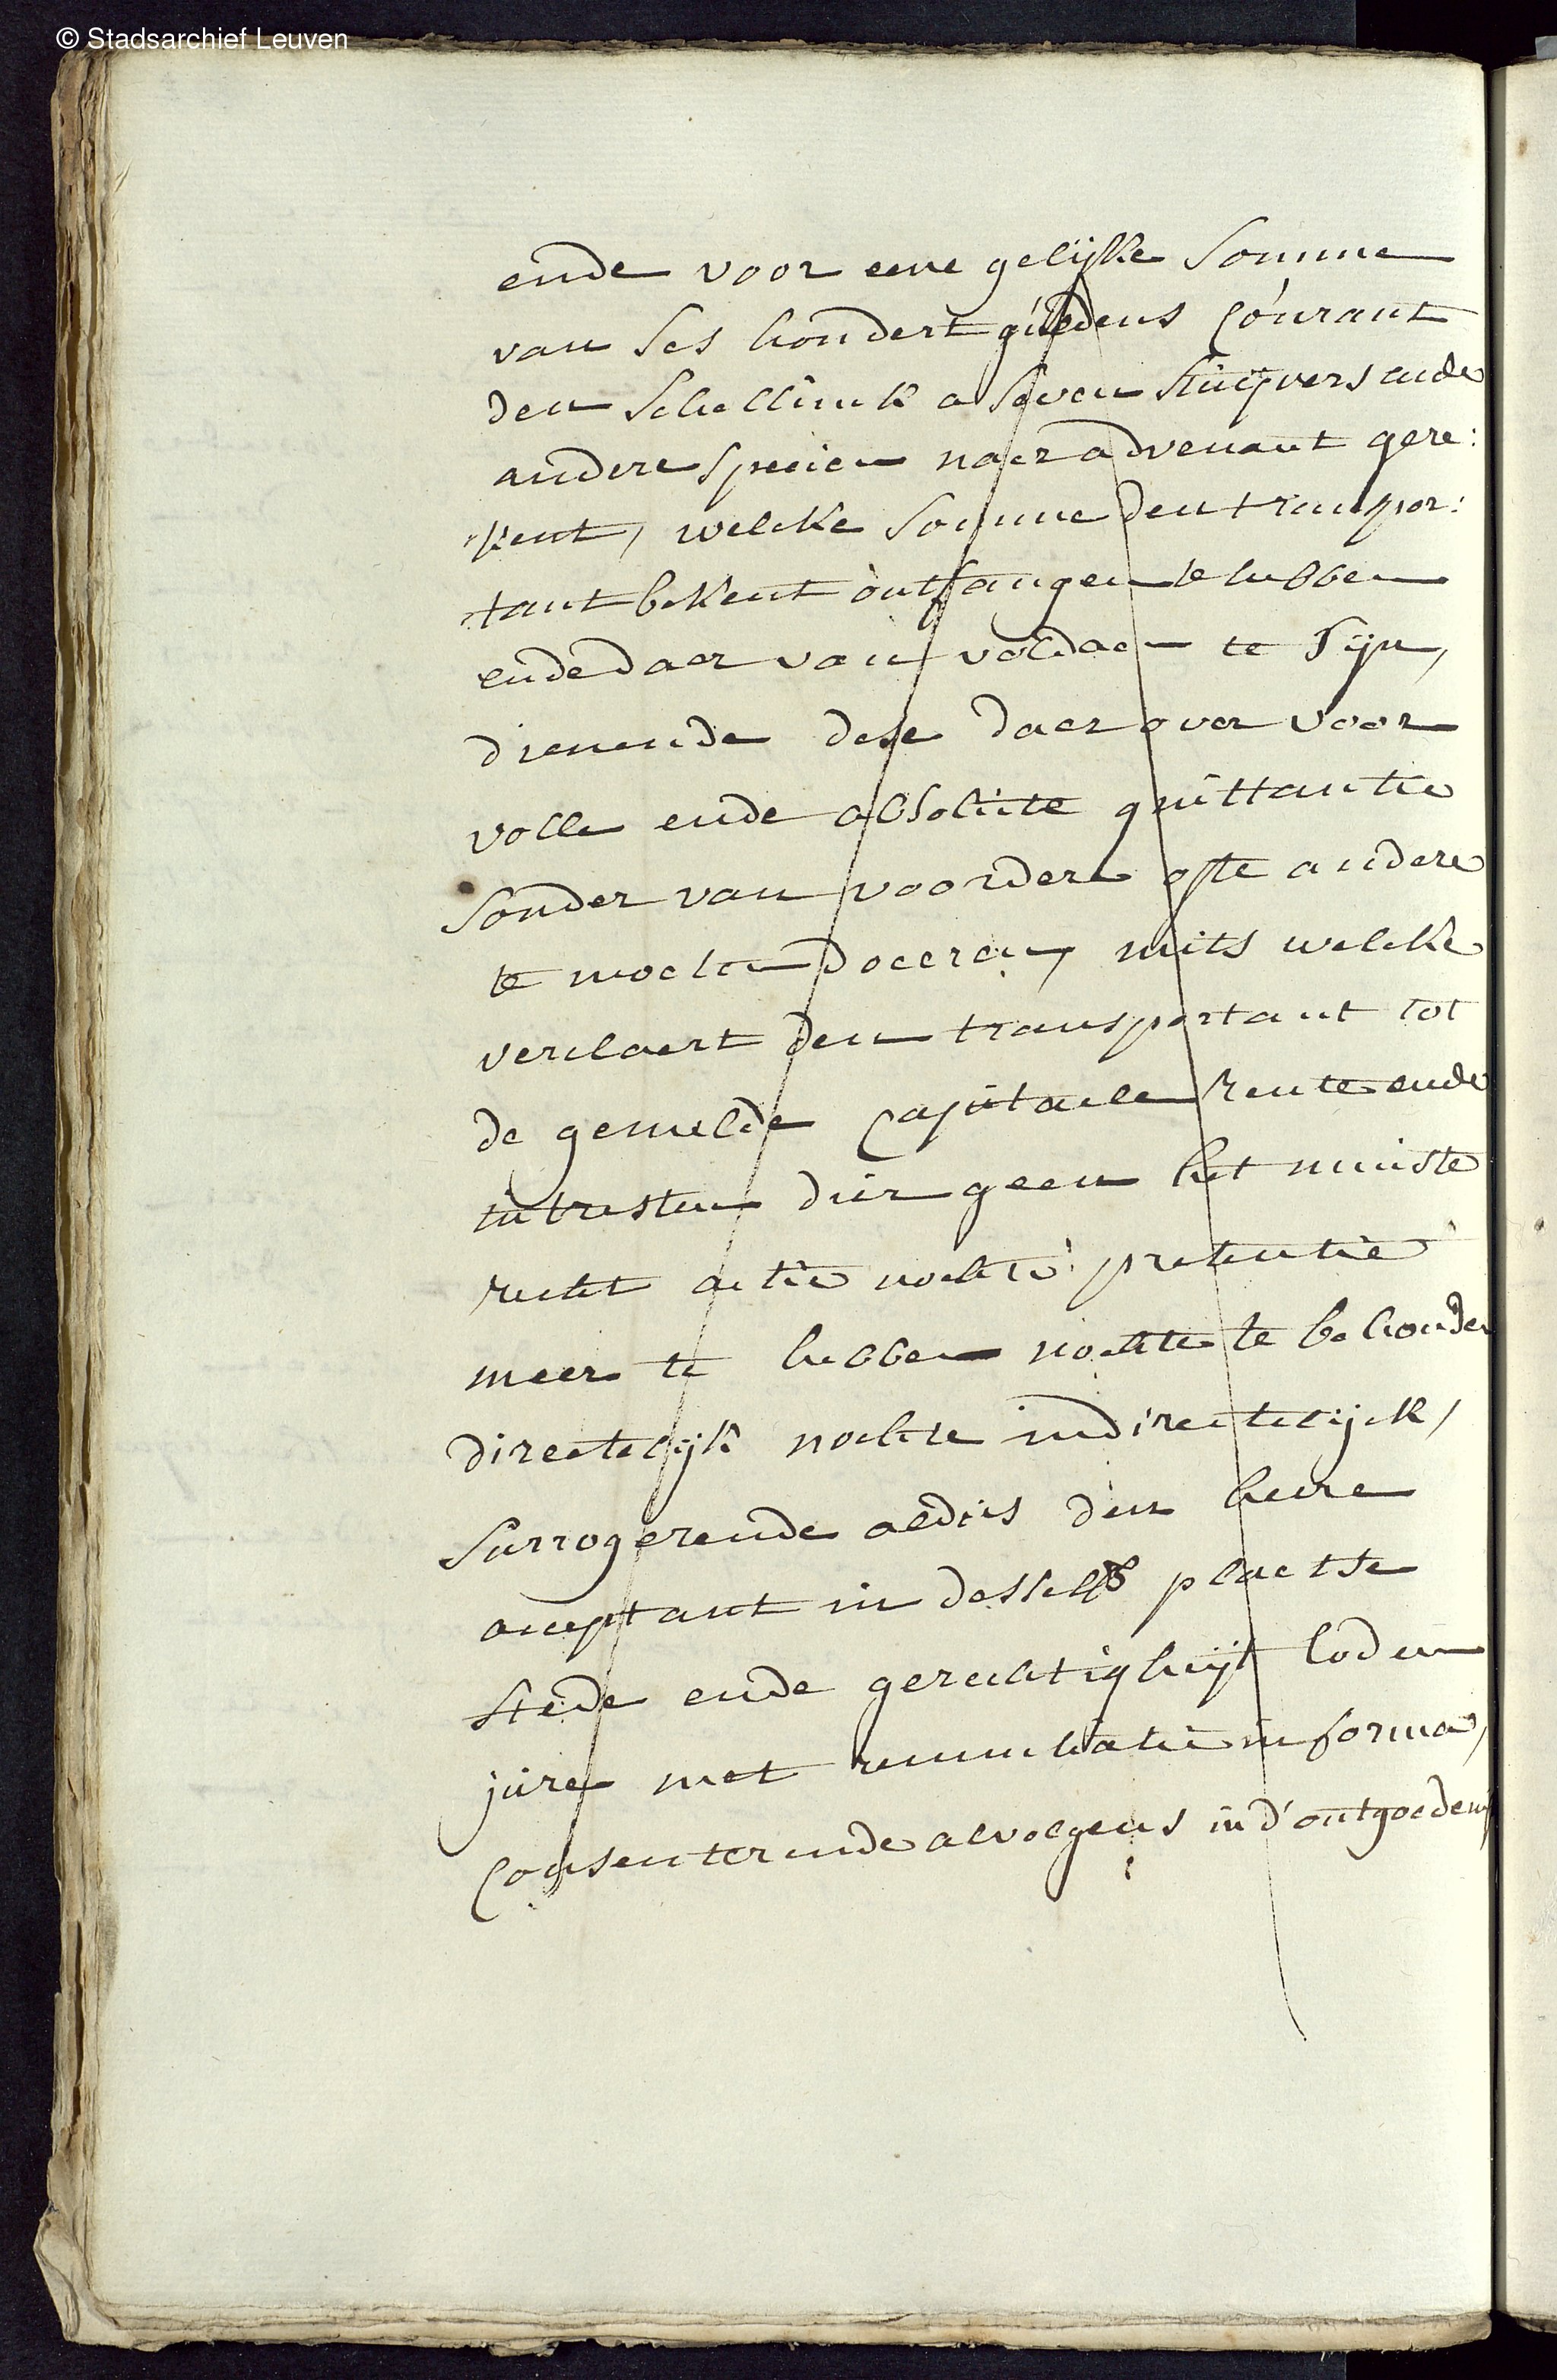 © Stadsarchief Leuven
ende voor eene gelijke Somme
van Ses hondert guldens Courant
den Schellinck a Seven stuijvers ende
andere Specien naer advenant gere:
kent, welcke Somme den transpor:
tant bekent ontfangen te hebben
ende daer van voldaen te Sijn,
dienende dese daer over voor
volle ende absolute quittantie
Sonder van voordere ofte andere
te moeten doceren, mits welcke
verclaert den transportant tot
de gemelde Capitaele rente ende
intresten dier geen het minste
recht actie nochte pretentie
meer te hebben nochte te behouden
directelijk nochte indirectelijck,
Surrogerende aldus den heere
acceptant in desselfs plaetse
stede ende gerechtigheijt Eodem
jure met renuntiatie in forma,
Consenterende alvolgens in d'ontgoedenis